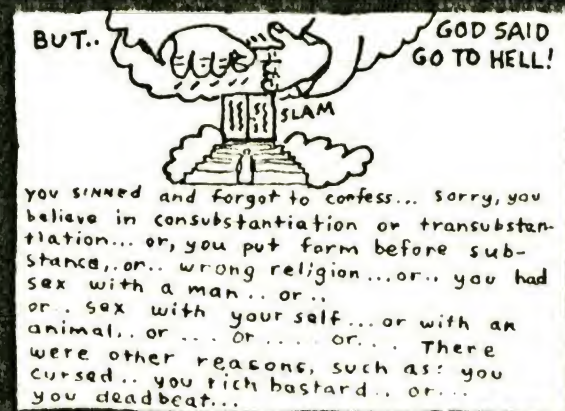 BUT..
GOD SAID
GO TO HELL!
SLAM
you sinned and forgot to confess... sorry, you
believe in consubstantiation or transubstan-
tiation... or, you put form before sub-
stance,.or.. wrong religion...or.. you had
sex with a man.. or..
or.. sex with your self...or with an
animal.. or .... or..... or.... There
were other reasons, such as: you
cursed.. you rich bastard.. or...
you deadbeat...